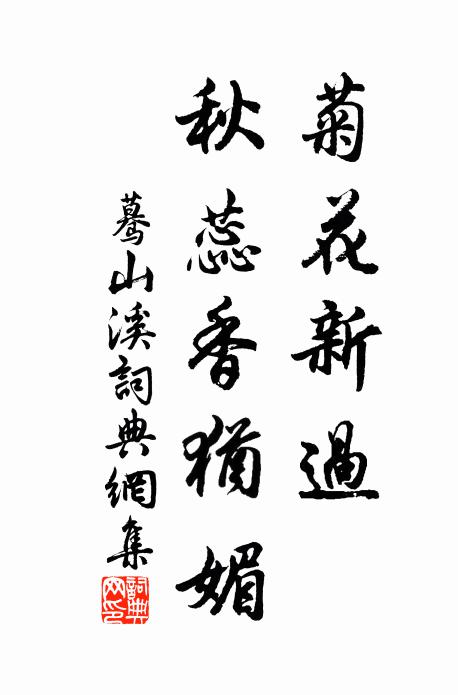 菊花新過
秋蕊香猶媚
蓦山溪詞典網集
詞典網印